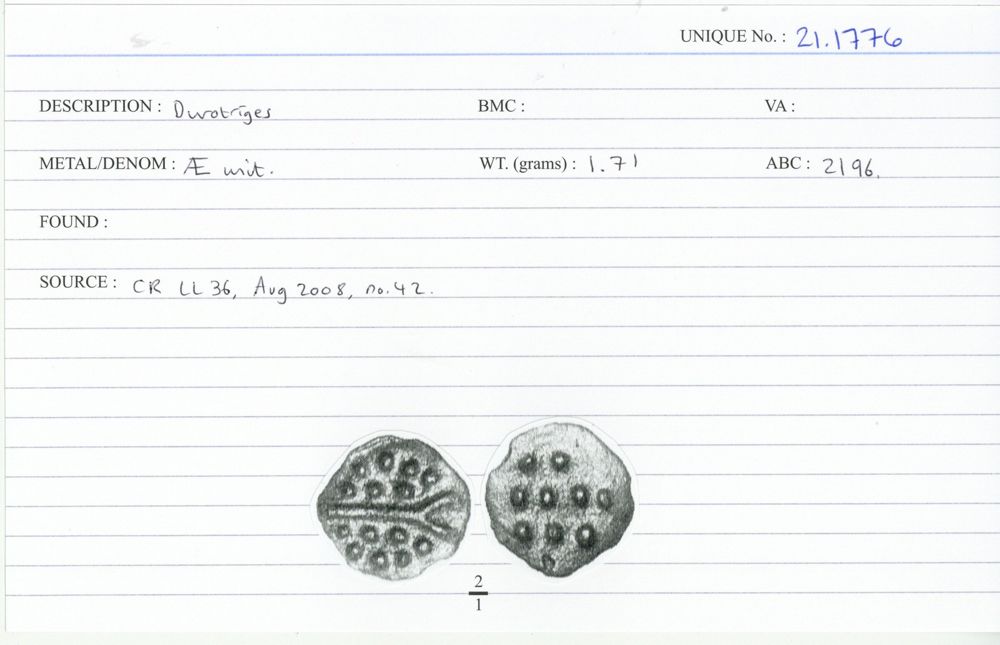 UNIQUE No. : 21.1776
DESCRIPTION : Durotriges BMC : VA :
METAL/DENOM : Æ unit. WT. (grams) : 1.71 ABC : 2196.
FOUND :
SOURCE : CR LL 36, Aug 2008, no. 42.
2
1